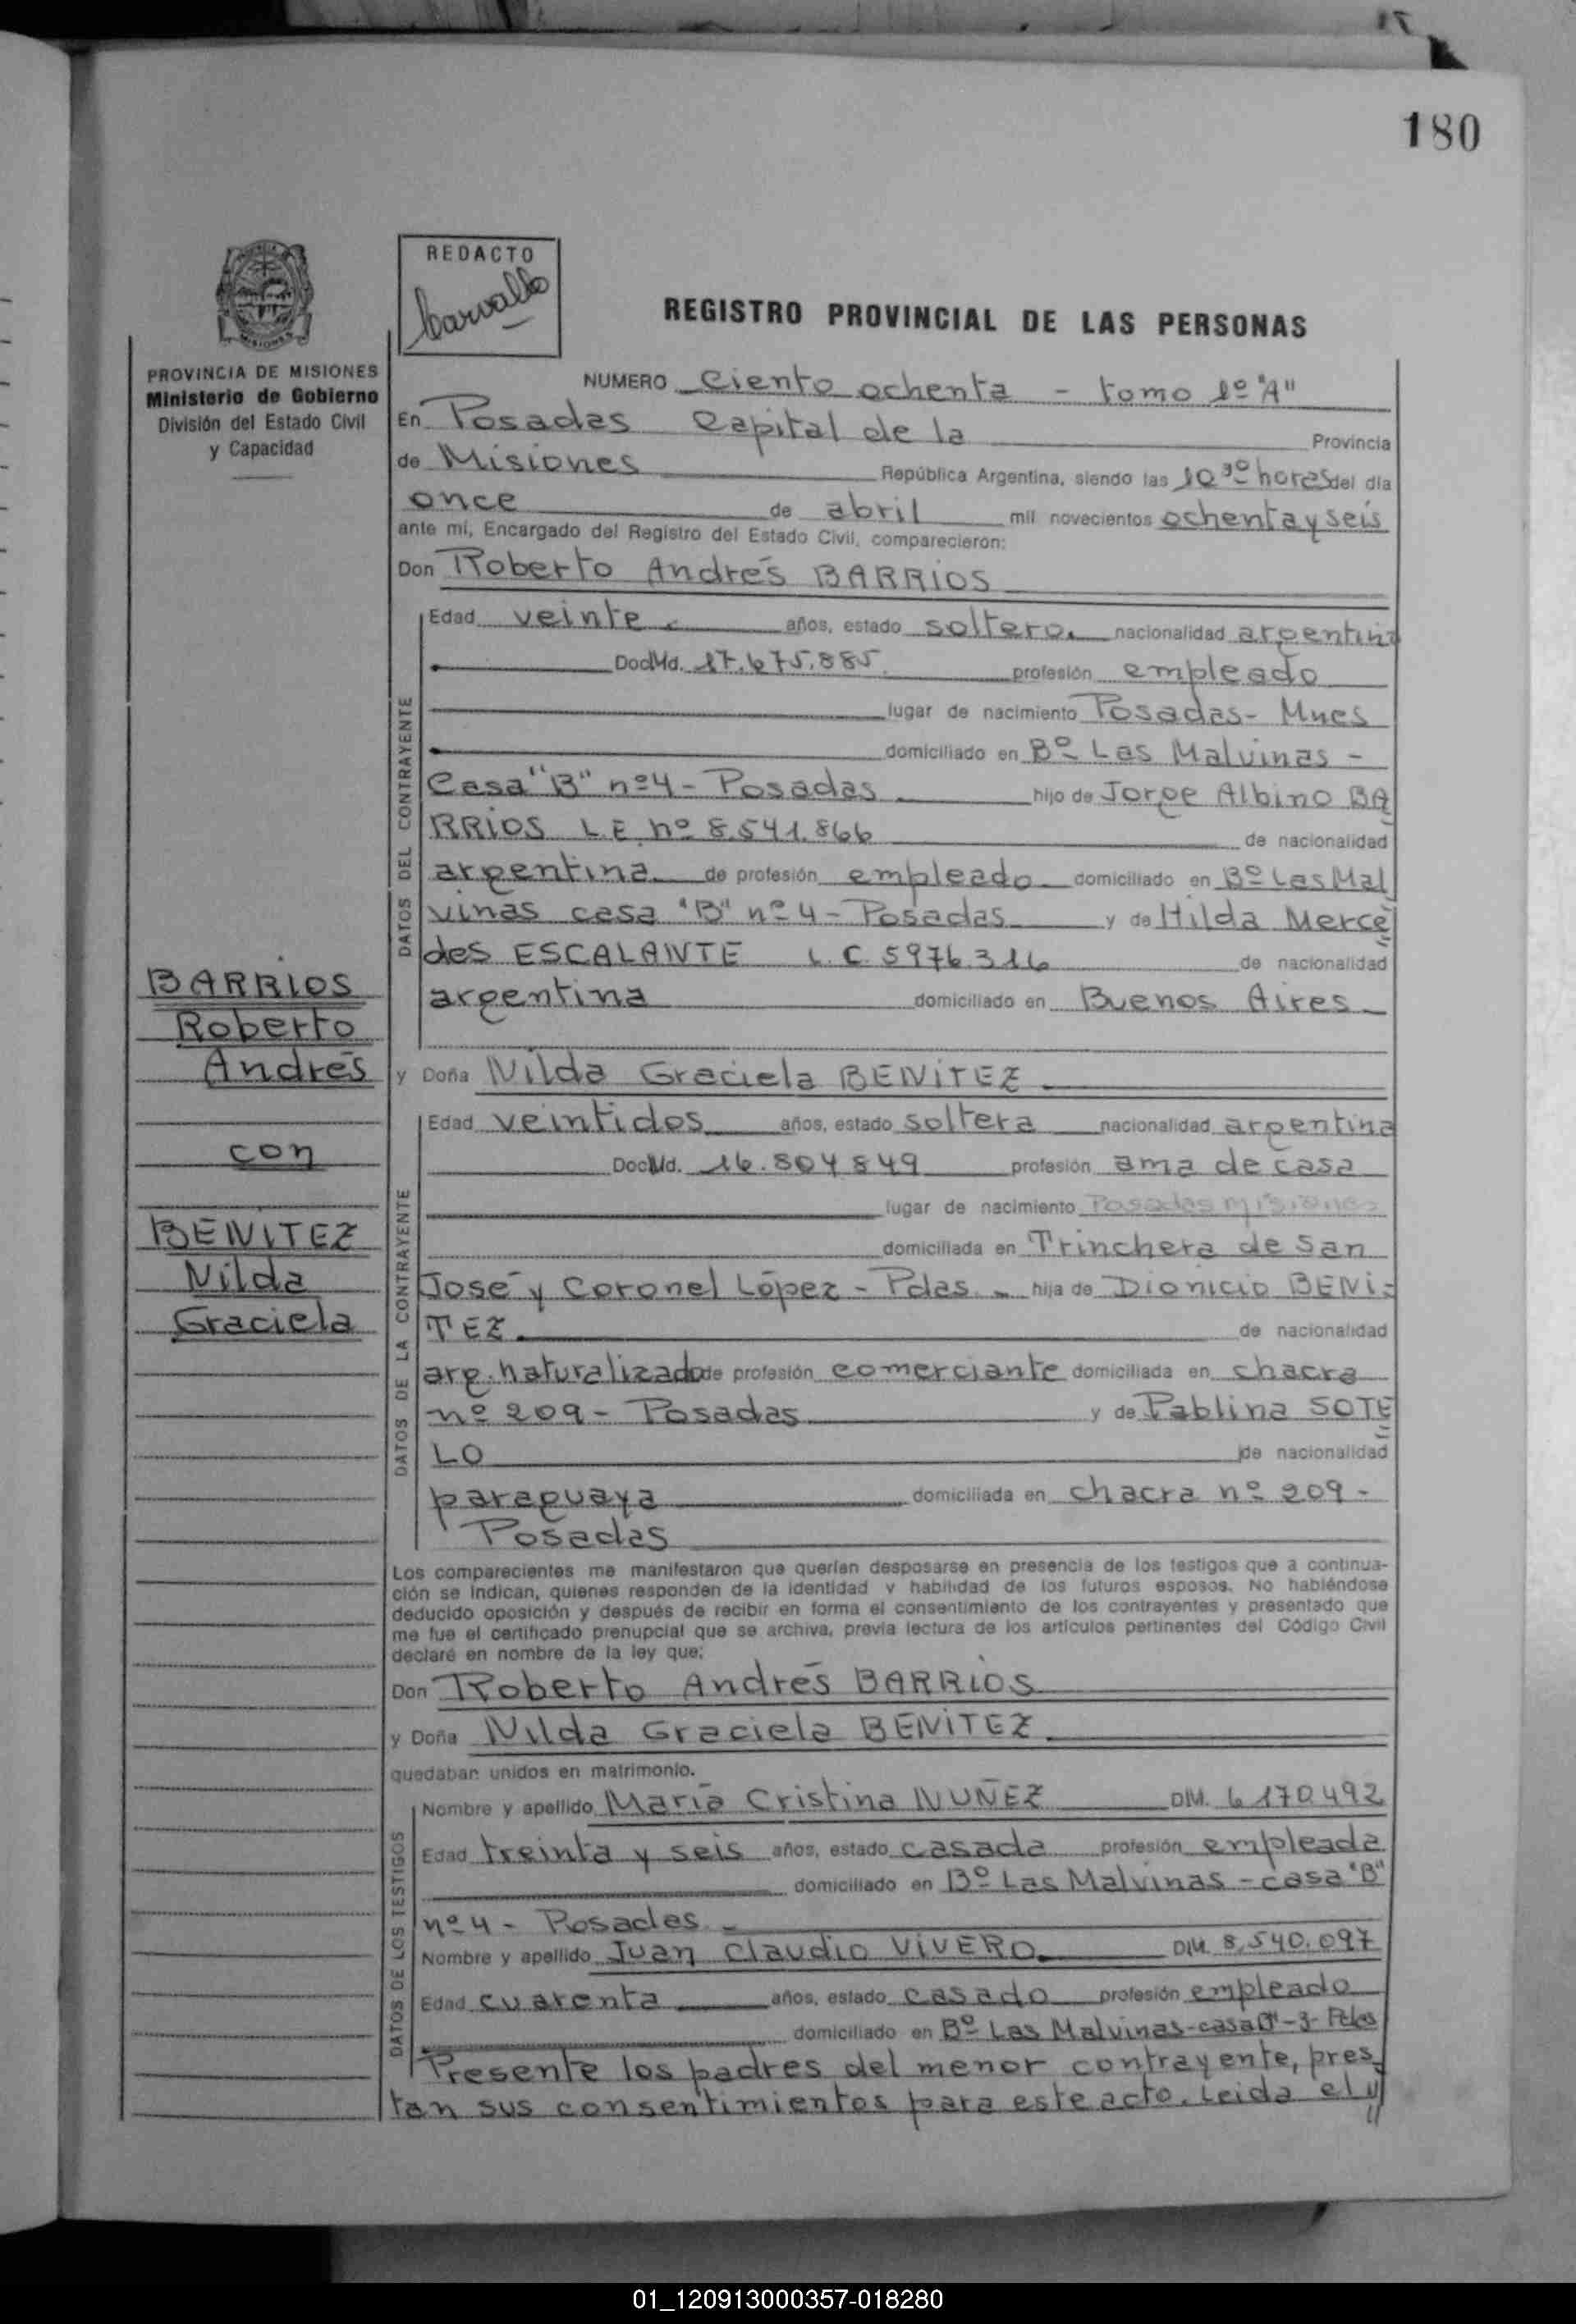 180
REDACTO
Carvallo
REGISTRO PROVINCIAL DE LAS PERSONAS
PROVINCIA DE MISIONES
Ministerio de Gobierno
División del Estado Civil
y Capacidad
NUMERO Ciento ochenta - tomo 1º "A"
En Posadas Capital de la Provincia
de Misiones República Argentina, siendo las 10 30 horas del día
once de abril mil novecientos ochenta y seis
ante mí, Encargado del Registro del Estado Civil, comparecieron:
Don Roberto Andrés BARRIOS
DATOS DEL CONTRAYENTE
Edad veinte años, estado soltero nacionalidad argentina
Doc. Nd. 17.675.885 profesión empleado
lugar de nacimiento Posadas - Mnes
domiciliado en Bº Las Malvinas -
Casa "B" nº 4 - Posadas hijo de Jorge Albino BA
RRIOS L.E. nº 8.541.866 de nacionalidad
argentina de profesión empleado domiciliado en Bº Las Mal
vinas casa "B" nº 4 - Posadas y de Hilda Merce
des ESCALANTE L.C. 5976.316 de nacionalidad
argentina domiciliado en Buenos Aires
BARRIOS
Roberto
Andrés
con
BENITEZ
Nilda
Graciela
y Doña Nilda Graciela BENITEZ
DATOS DE LA CONTRAYENTE
Edad veintidos años, estado soltera nacionalidad argentina
Doc. Nd. 16.804.849 profesión ama de casa
lugar de nacimiento Posadas Misiones
domiciliada en Trinchera de San
José y Coronel López - Pdas. - hija de Dionicio BENI=
TEZ de nacionalidad
arg. naturalizado de profesión comerciante domiciliada en chacra
nº 209 - Posadas y de Pablina SOTE
LO de nacionalidad
paraguaya domiciliada en chacra nº 209 -
Posadas
Los comparecientes me manifestaron que querían desposarse en presencia de los testigos que a continua-
ción se indican, quienes responden de la identidad y habilidad de los futuros esposos. No habiéndose
deducido oposición y después de recibir en forma el consentimiento de los contrayentes y presentado que
me fue el certificado prenupcial que se archiva, previa lectura de los artículos pertinentes del Código Civil
declaré en nombre de la ley que:
Don Roberto Andrés BARRIOS
y Doña Nilda Graciela BENITEZ
quedaban unidos en matrimonio.
DATOS DE LOS TESTIGOS
Nombre y apellido María Cristina NUÑEZ DM. 6.170.492
Edad treinta y seis años, estado casada profesión empleada
domiciliado en Bº Las Malvinas - casa "B"
nº 4 - Posadas -
Nombre y apellido Juan Claudio VIVERO DM. 8.540.097
Edad cuarenta años, estado casado profesión empleado
domiciliado en Bº Las Malvinas - casa - 3 - Pdas
Presente los padres del menor contrayente, pres
tan sus consentimientos para este acto. Leida el
01_120913000357-018280